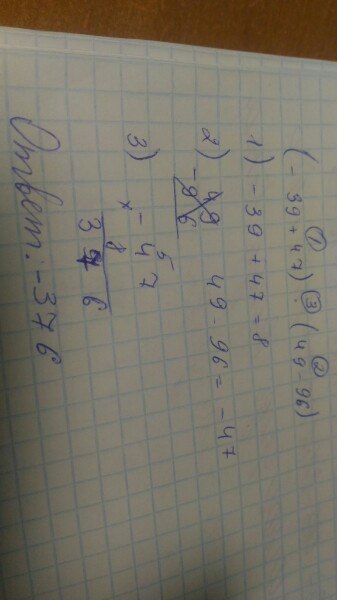 (-39+47) · (49-96)
1) -39+47=8
2) 49-96=-47
3) -47
× 8
376
Ответ: -376